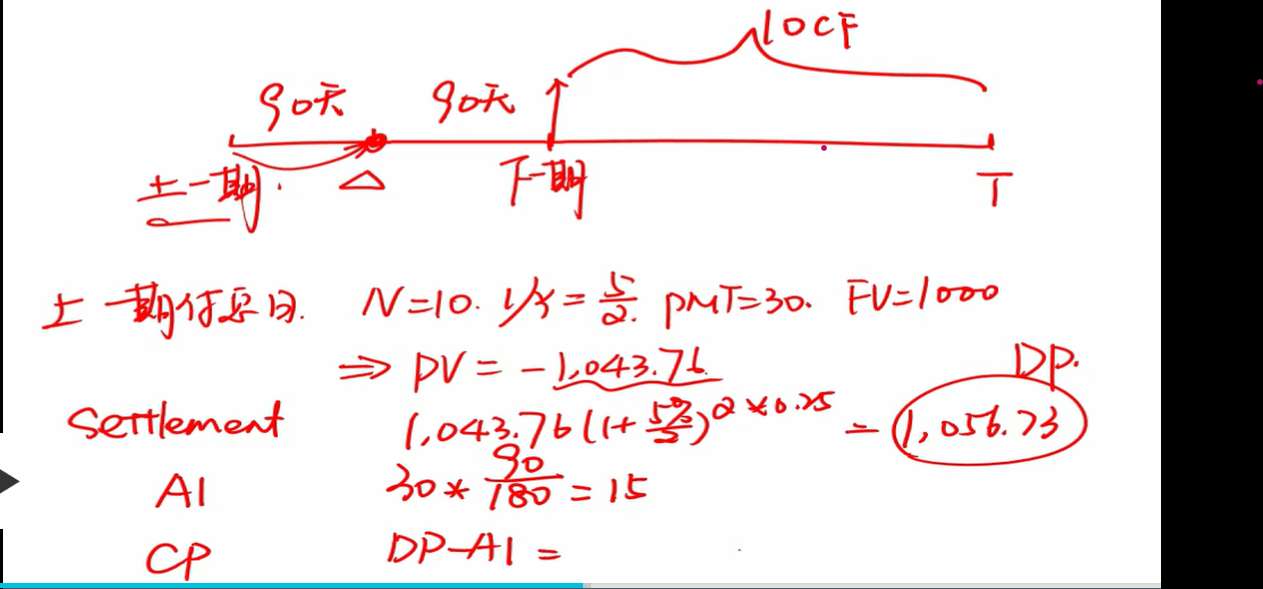 10CF
90天 90天
上一期. △ 下一期 T
上一期付息日. N=10. I/Y=5/2. PMT=30. FV=1000
⇒ PV = -1,043.76
DP.
Settlement 1,043.76(1+5%/2)^2*0.25 = 1,056.73
AI 30*90/180=15
CP DP-AI =